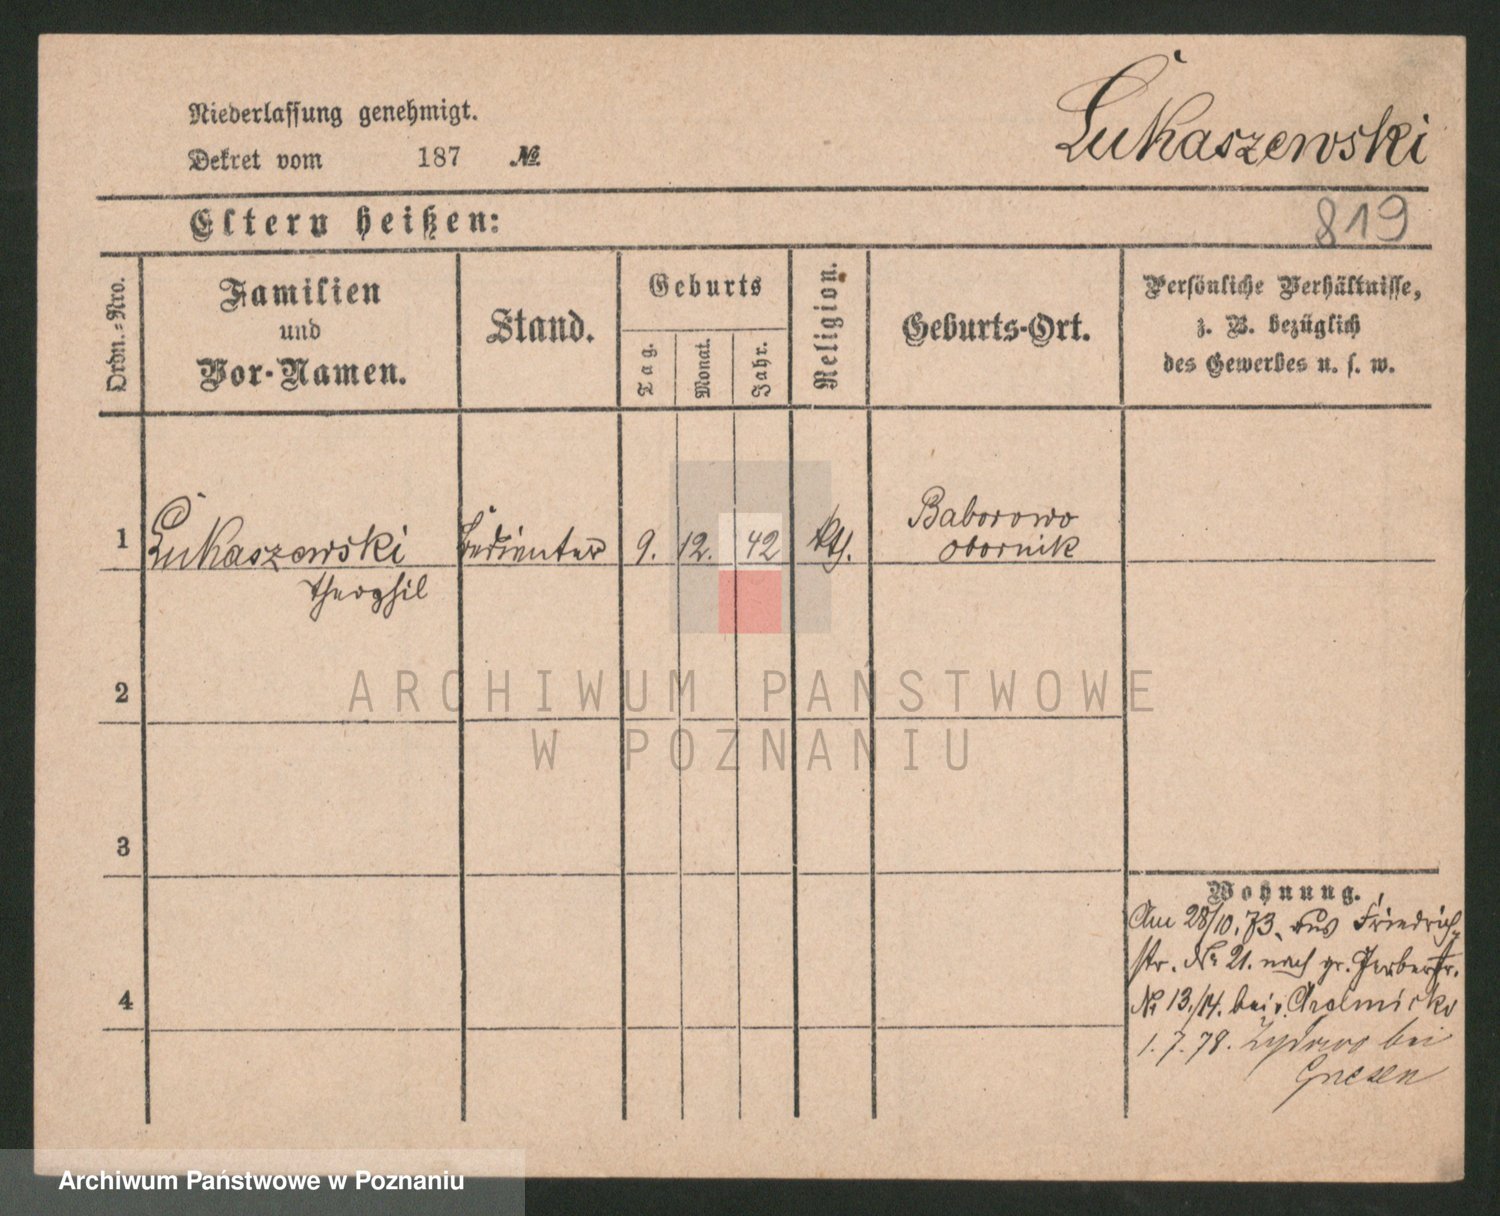 Niederlassung genehmigt.
Dekret vom 187 №
Lukaszewski
Eltern heißen:
819
Ordn.-Nro.
Familien
und
Vor-Namen.
Stand.
Geburts
Tag.
Monat.
Jahr.
Religion.
Geburts-Ort.
Persönliche Verhältnisse,
z. B. bezüglich
des Gewerbes u. s. w.
1 Lukaszewski Bedienter 9. 12. 42 kth. Baborowo
Obornik
Theophil
2
ARCHIWUM PAŃSTWOWE
W POZNANIU
3
Wohnung.
Am 28/10.73. aus Friedrich-
str. No 21. nach gr. Gerberstr.
4
No 13./14. bei v.
1.7.78. Zydowo bei
Gnesen
Archiwum Państwowe w Poznaniu